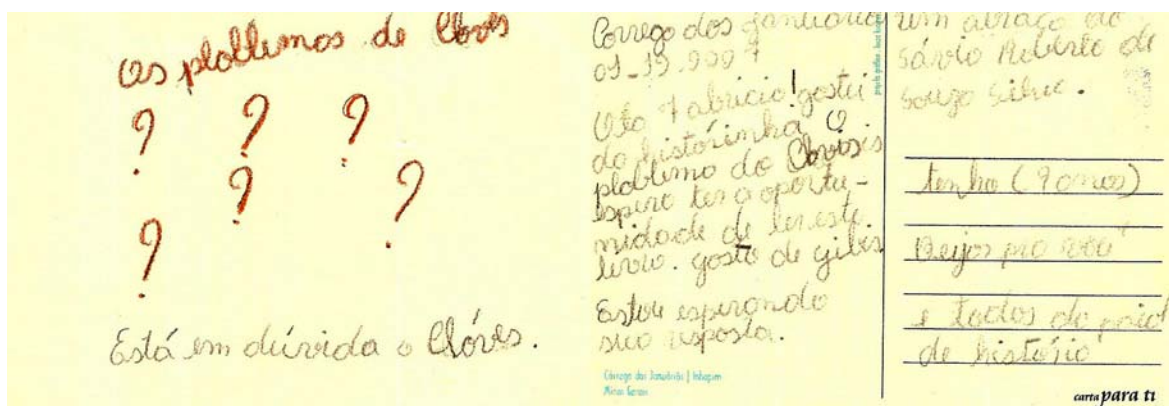 Os ploblemas de Clóvis
? ? ?
? ?
?
Está em dúvida o Clóvis.
Corrego dos Januários
Fabricio! gostei
da histórinha O
ploblema do Clovis
espero ter a oportu-
nidade de ler este
livro. gosto de gibis
Estou esperando
sua resposta.
Córrego dos Januários | Inhapim
Minas Gerais
um abraço do
Sávio Roberto de
Souza Silva.
tenho (9 anos)
Beijos pra você
e todos do
de história
carta para ti